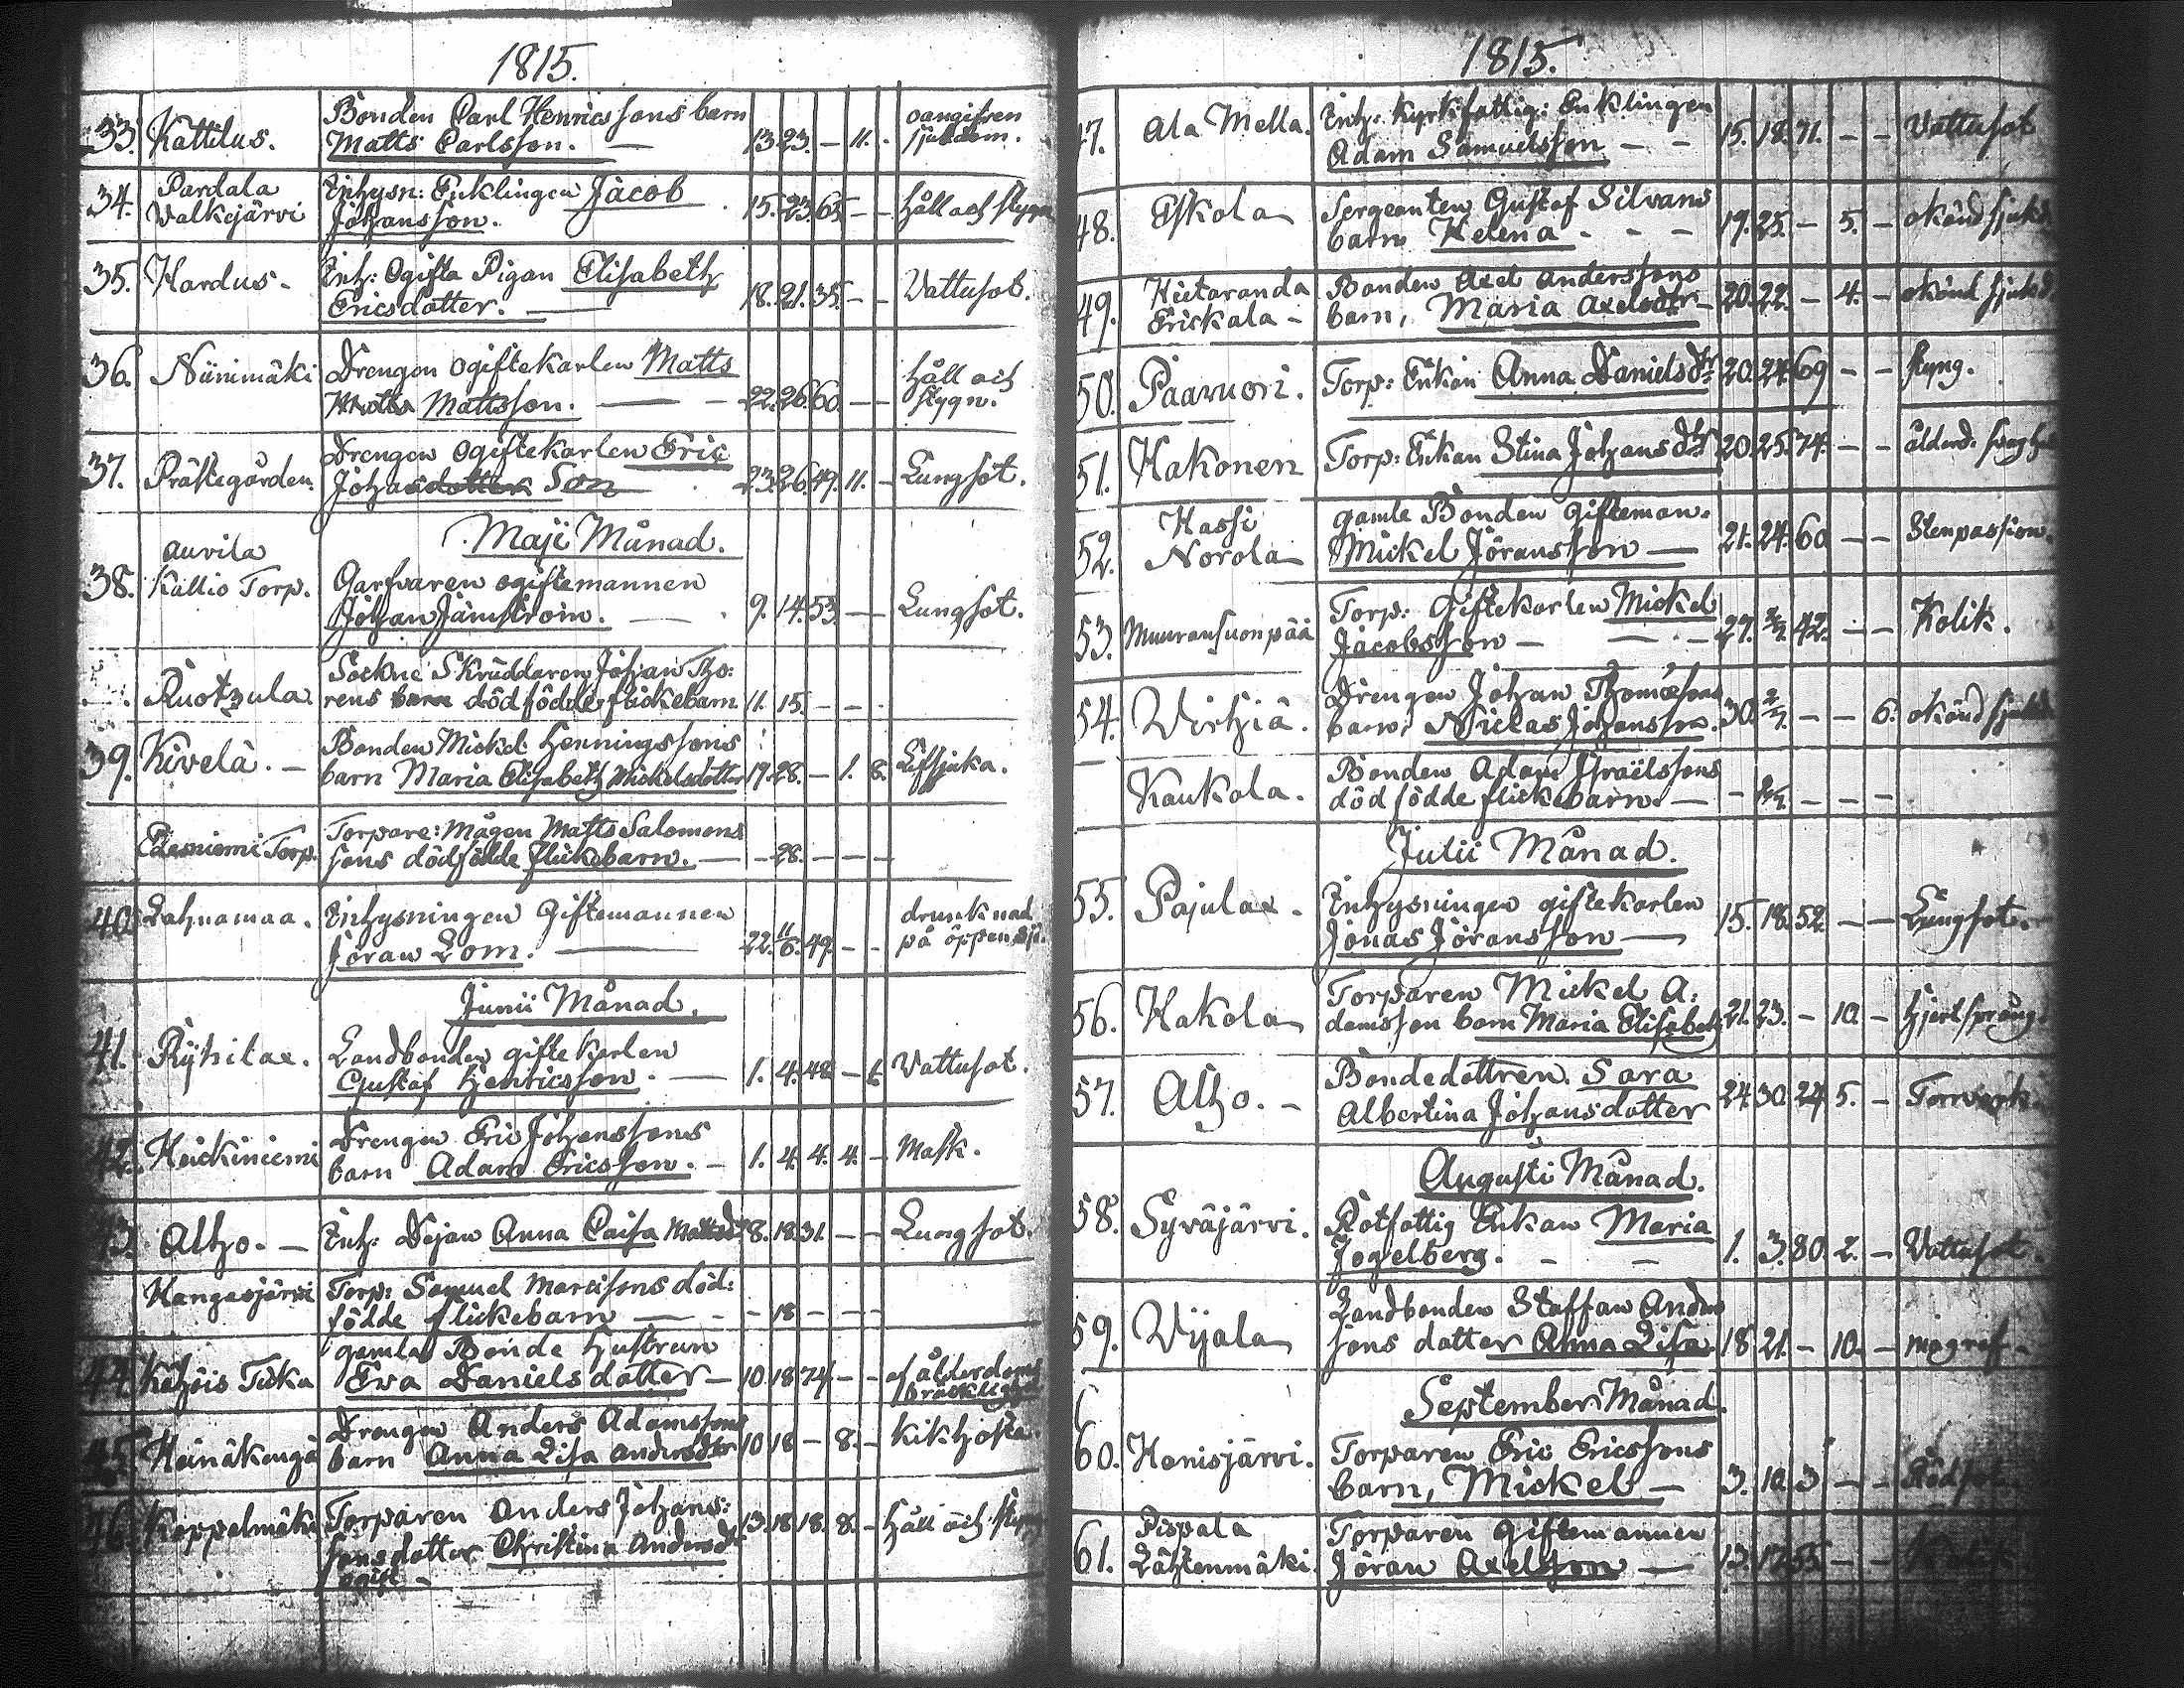 1815.
33. Kattilus. Bonden Carl Henricssons barn oangifven
Matts Carlsson. — 13. 23. — 11. . sjukdom.
34. Pardala Inhysn: Enklingen Jacob
Valkejärvi Johansson. 15. 23. 65. — — håll och stygn
35. Hardus. Inh: Ogifta Pigan Elisabeth
Ericsdotter. — 18. 21. 35. — — Vattusot.
36. Niinimäki Drengen ogifte karlen Matts håll och
Mattsson. — 22. 26. 60. — — stygn.
37. Prästegården. Drengen ogifte karlen Eric
Johansson 23. 26. 49. 11. — Lungsot.
Maji Månad.
38. Auvila
Kallio Torp. Garfvaren ogiftemannen
Johan Jämström. — 9. 14. 53. — Lungsot.
Sockne Skräddaren Johan Tho:
Ruotzula rens barn dödfödde flickebarn 11. 15. — —
39. Kivelä. — Bonden Mickel Henningssons
barn Maria Elisabeth Mickelsdotter 17. 28. — 1. 8. Lefsjuka.
Torpare: Mågen Matts Salomons
Edesniemi Torp. sons dödfödde flickebarn. — — 28. — — —
40. Lahnamaa. Inhysningen Giftemannen drunknad
Jöran Lom. — 22. 11/6. 49. — — på öppen sjö.
Junii Månad.
41. Ryhilax. Landbonden gifte karlen
Gustaf Henricsson. — 1. 4. 48. — 6. Vattusot.
42. Heickiniemi Drengen Eric Johanssons
barn Adam Ericsson. — 1. 4. 4. 4. — Mask.
43. Alho. — Inh: Dejan Anna Caisa Mattsdr 8. 18. 31. — — Lungsot.
Hangasjärvi Torp: Samuel Marcisons död:
födde flickebarn — — 18 — — —
44. Kähöis Tuka gamla Bonde Hustrun
Eva Danielsdotter — 10. 18. 74. — — af ålderdoms
bräcklighet
45. Heinäkangas Drengen Anders Adamssons
barn Anna Lisa Andersdtr 10. 18 — 8. — Kikhosta.
46. Koppelmäki Torparen Anders Johans:
sons dotter Christina Andersdr 13. 18. 18. 8. — håll och stygn
ogift —
1815.
47. Ala Mella. Inh: Kyrkfattig: Enklingen
Adam Samuelsson — — 15. 18. 71. — — Vattusot
48. Eskola Sergeanten Gustaf Silvans
barn Helena — — — 19. 25. — 5. — okänd sjukd.
49. Hietaranda Bonden Axel Anderssons
Erickala — barn, Maria Axelsdtr — 20. 22. — 4. — okänd sjukd.
50. Paavuori. Torp: Enkan Anna Danielsdr 20. 24. 69 — — styng.
51. Hakonen Torp: Enkan Stina Johansdtr 20. 25. 74. — — ålderd. svagh
52. Hassi gamle Bonden Gifteman.
Norola Mickel Jöransson — 21. 24. 60 — — Stenpassion.
53. Muuransuonpää Torp: Giftekarlen Mickel
Jacobsson — — — 27. 2/7. 42. — — Kolik.
54. Virhiä. Drengen Johan Thomæsons
barn, Niclas Johansson. 30. 2/7. — — 6. okänd sjukd.
Kaukola. Bonden Adam Israëlssons
dödfödde flickebarn. — — 2/7. — — —
Julii Månad.
55. Pajulax. Inhysningen giftekarlen
Jonas Jöransson — 15. 18. 52. — — Lungsot.
56. Hakola Torparen Mickel A:
damsson barn Maria Elisabeth 21. 23. — 10. — hjertsprång.
57. Alho. — Bondedottren Sara
Albertina Johansdotter 24. 30. 24 5. — Torrverk
Augusti Månad.
58. Syväjärvi. Rotfattig Enkan Maria
Fogelberg. — — 1. 3. 80. 2. — Vattusot.
59. Vijala Landbonden Staffan Anders
sons dotter Anna Lisa. 18. 21. — 10. — magref.
September Månad.
60. Hanisjärvi. Torparen Eric Ericssons
barn, Mickel — 3. 10. 3 — — Rödsot
61. Pispala Torparen Giftemannen
Lähtenmäki. Jöran Axelsson — 13. 17. 55. — —